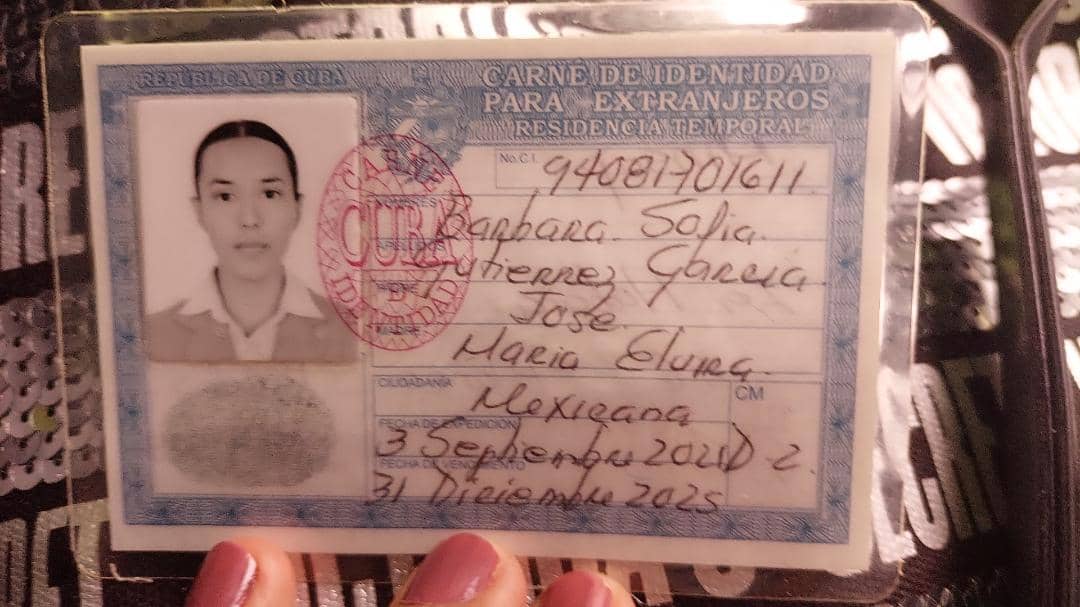 REPUBLICA DE CUBA
CARNÉ DE IDENTIDAD
PARA EXTRANJEROS
RESIDENCIA TEMPORAL
No. C.I. 94081701611
NOMBRES
Barbara Sofia
APELLIDOS
Gutierrez Garcia
PADRE
Jose
MADRE
Maria Elvira
CIUDADANÍA
Mexicana
CM
FECHA DE EXPEDICIÓN
3 Septiembre D-2
FECHA DE VENCIMIENTO
31 Diciembre 2025
CARNE DE IDENTIDAD
CUBA